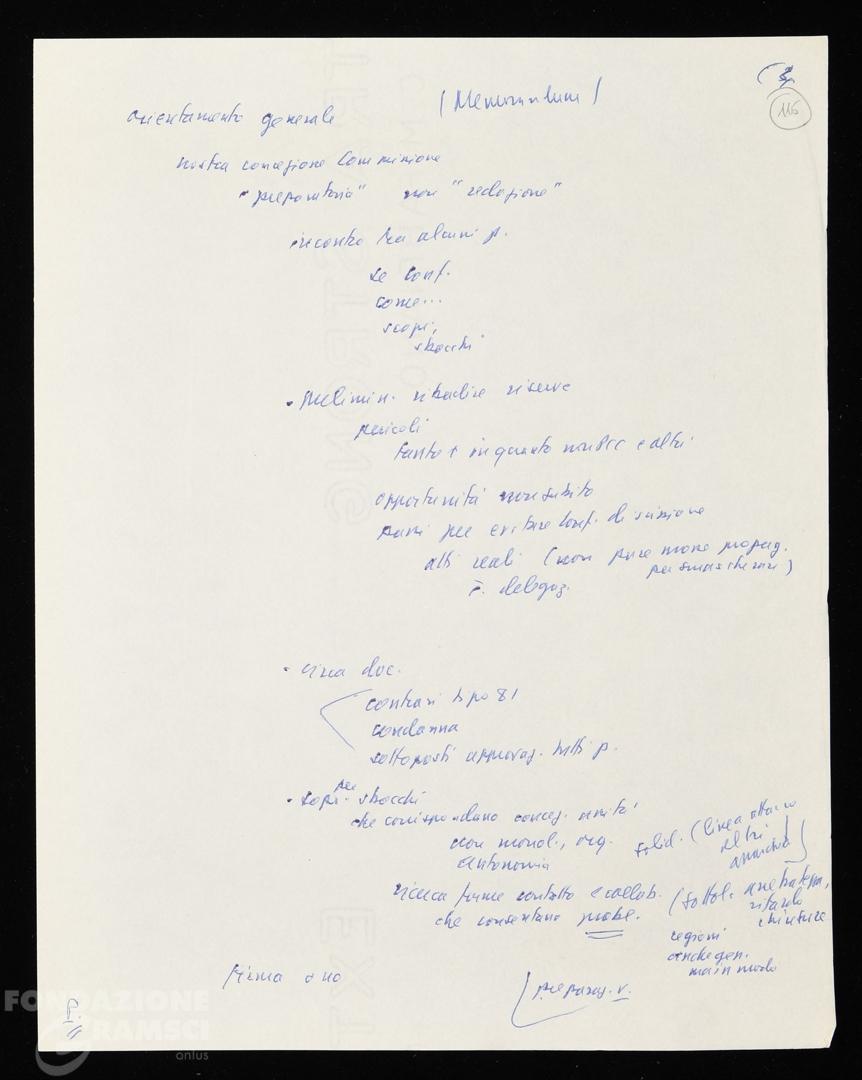 (3
116
(Memorandum)
orientamento generale
nostra concezione Commissione
"preparatoria" non "redazione"
incontro tra alcuni p.
se conf.
come...
scopi,
sbocchi
• Prelimin. ribadire riserve
pericoli
tanto + in quanto e altri
opportunità non subito
passi per evitare conf. di scissione
atti reali (non pure mosse propag.
per smascherare)
delegaz.
• circa doc.
contrari tipo 81
condanna
sottoposti approvaz. tutti p.
• scopi per sbocchi
che corrispondano concez. unità
non monol., org. solid. (linea attacco
altri
autonomia
ricerca forme contatto e collab. (sottol.
che consentano probl.
ritardo
chiusure
regioni
anche gen.
ma in modo
firma o no
preparaz. v.
FONDAZIONE
GRAMSCI
onlus